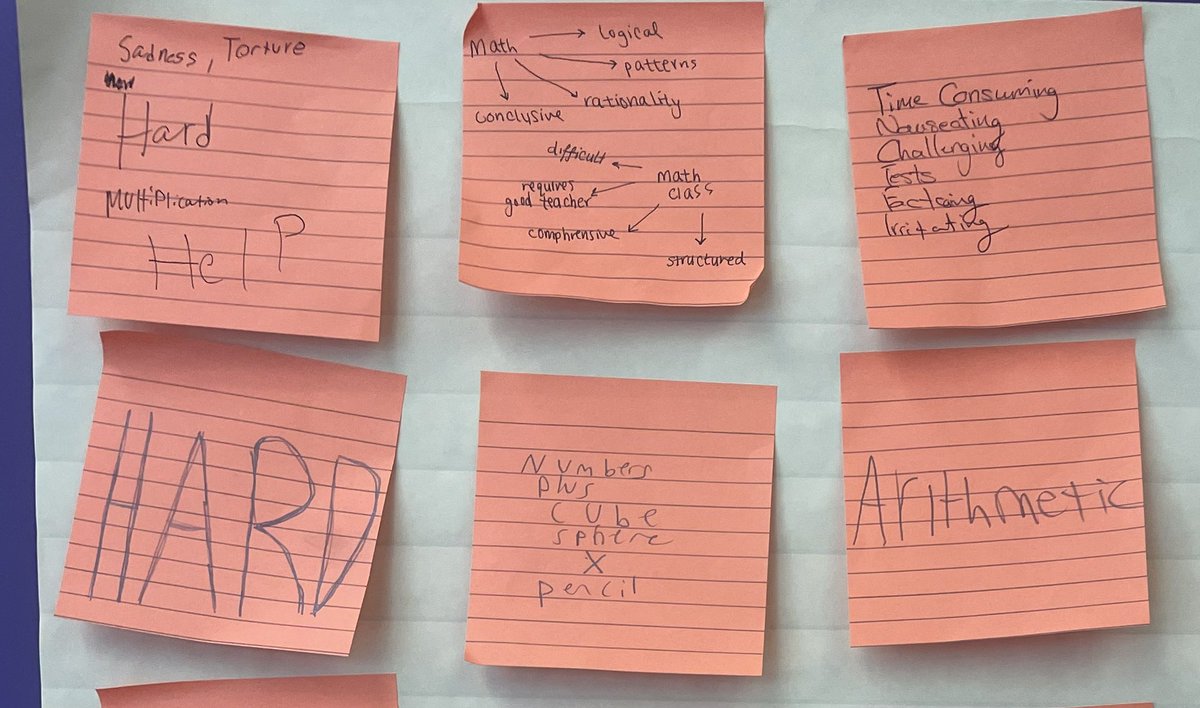 Sadness, Torture
Hard
Multiplication
HelP
Math → Logical
→ patterns
→ rationality
conclusive
difficult
math
class
requires
good teacher
comphrensive
structured
Time Consuming
Nauseating
Challenging
Tests
Irritating
HARD
Numbers
plus
cube
sphere
X
pencil
Arithmetic